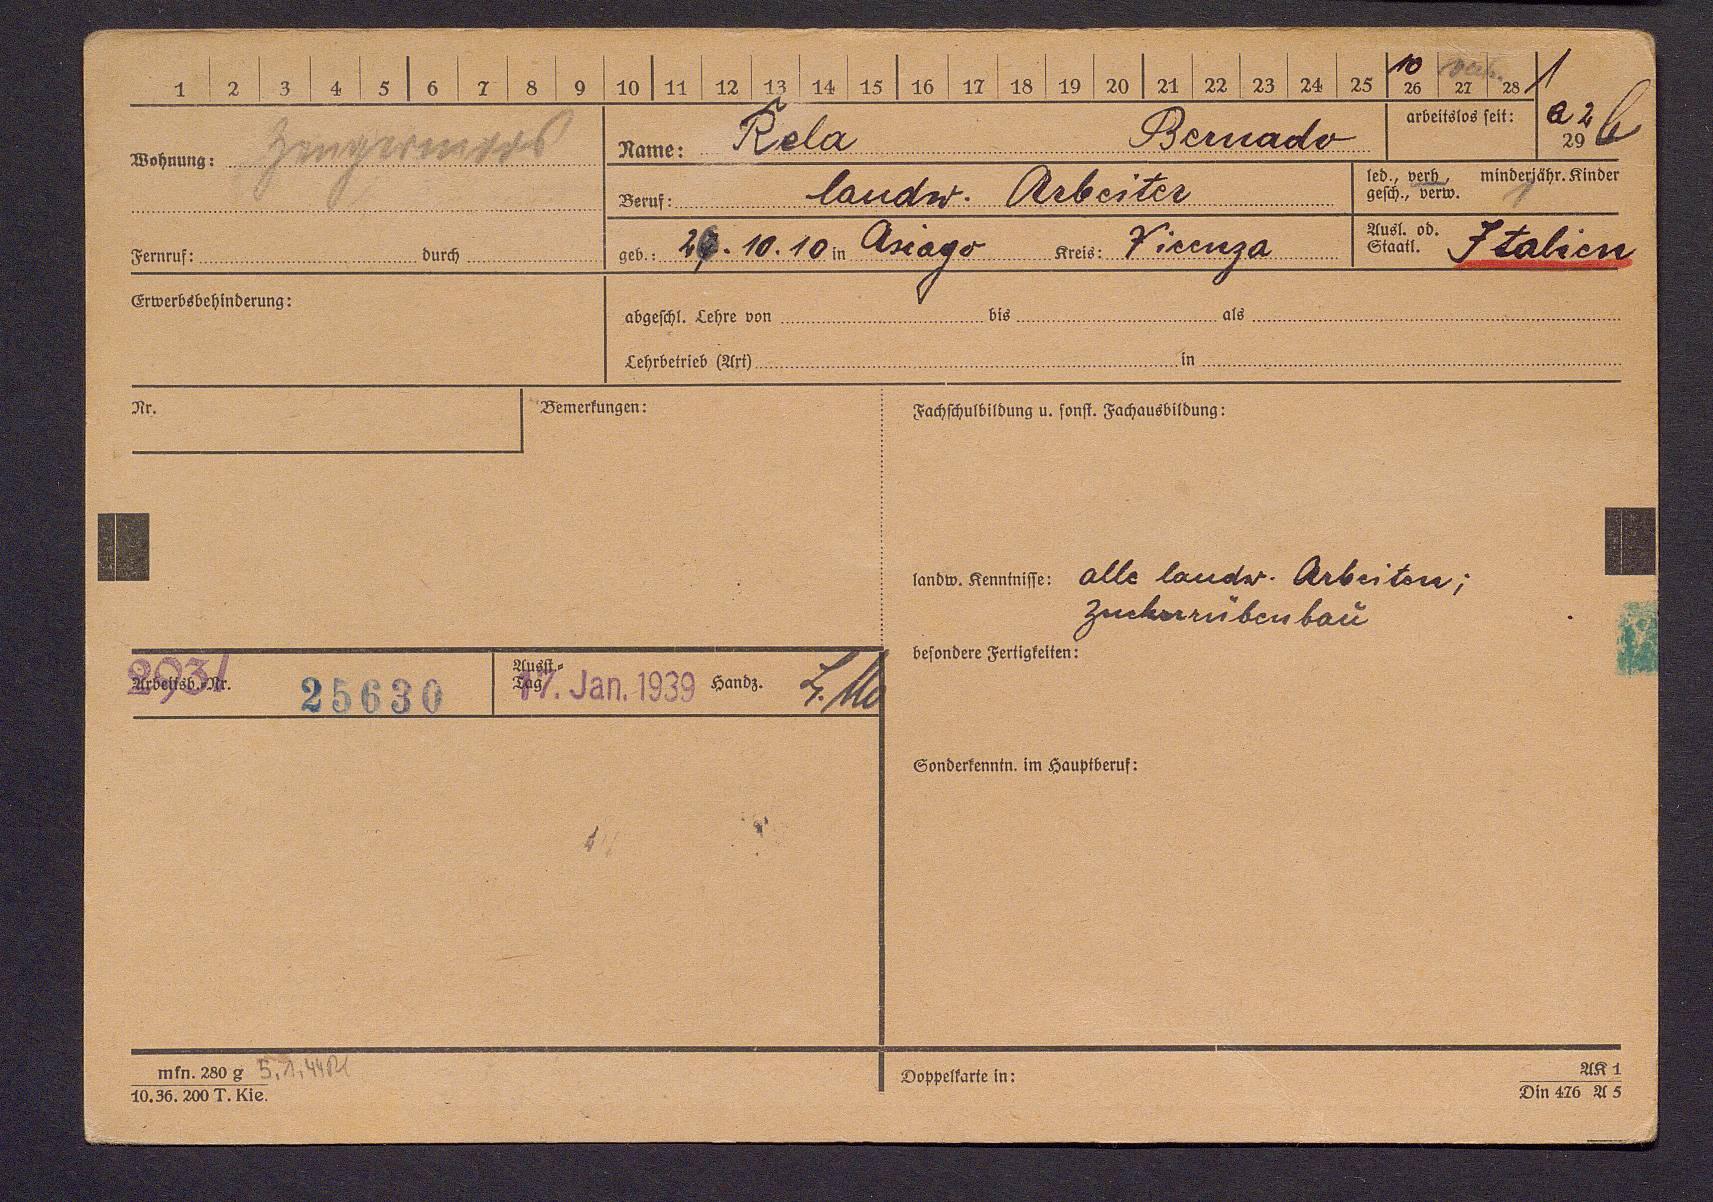 1 2 3 4 5 6 7 8 9 10 11 12 13 14 15 16 17 18 19 20 21 22 23 24 25 26 27 28
10 verh. 1
Wohnung: Zengermoos
Name: Rela Bernado
arbeitslos seit:
a 2 b
29
Beruf: landw. Arbeiter
led., verh., minderjähr. Kinder
gesch., verw. 1
Fernruf: durch
geb.: 10.10 in Asiago Kreis: Vicenza
Ausl. od.
Staatl. Italien
Erwerbsbehinderung:
abgeschl. Lehre von bis als
Lehrbetrieb (Art) in
Nr.
Bemerkungen:
Fachschulbildung u. sonst. Fachausbildung:
landw. Kenntnisse: alle landw. Arbeiten;
Zuckerrübenbau
besondere Fertigkeiten:
2931
Arbeitsb.-Nr. 25630
Ausst.-
Tag 17. Jan. 1939 Handz.
Sonderkenntn. im Hauptberuf:
mfn. 280 g 5.1.44
10.36. 200 T. Kie.
Doppelkarte in:
AK 1
Din 476 A 5